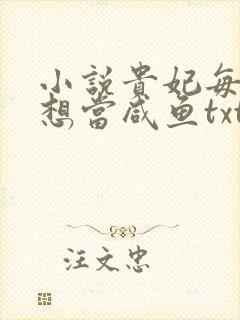 小說貴妃每
想當咸鱼txt
汪文忠